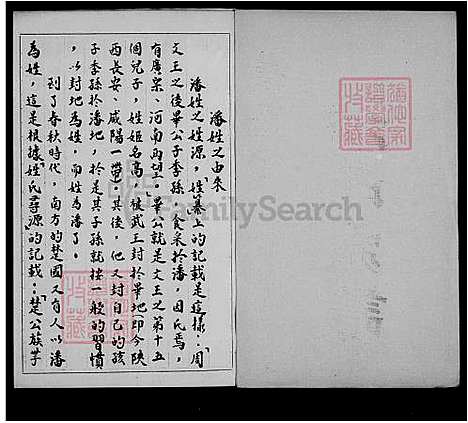 潘姓之由來
潘姓之姓源，「姓纂上的記載是這樣：「周
文王之後畢公子季孫，食采於潘，因氏焉，
有廣宗、河南兩望。畢公就是文王之第十五
個兒子，姓姬名高，被武王封於畢地即今陝
西長安、咸陽一帶，其後，他又封自己的孩
子季孫於潘地，於是其子孫就按一般的習慣
，以封地為姓，而姓為潘了。
到了春秋時代，南方的楚國又有人以潘
為姓，這是根據「姓氏尋源」的記載：「楚公族羋
收藏
FamilySearch